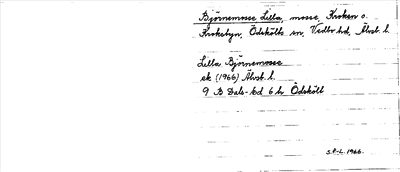 Björnemosse Lilla, mosse, Kroken o.
Krokebyn, Ödskölts sn, Vedbo hd, Älvsb. l.
Lilla Björnemosse
ek (1966) Älvsb. l.
9 B Dals-Ed 6 h Ödskölt
S.P-L. 1966.